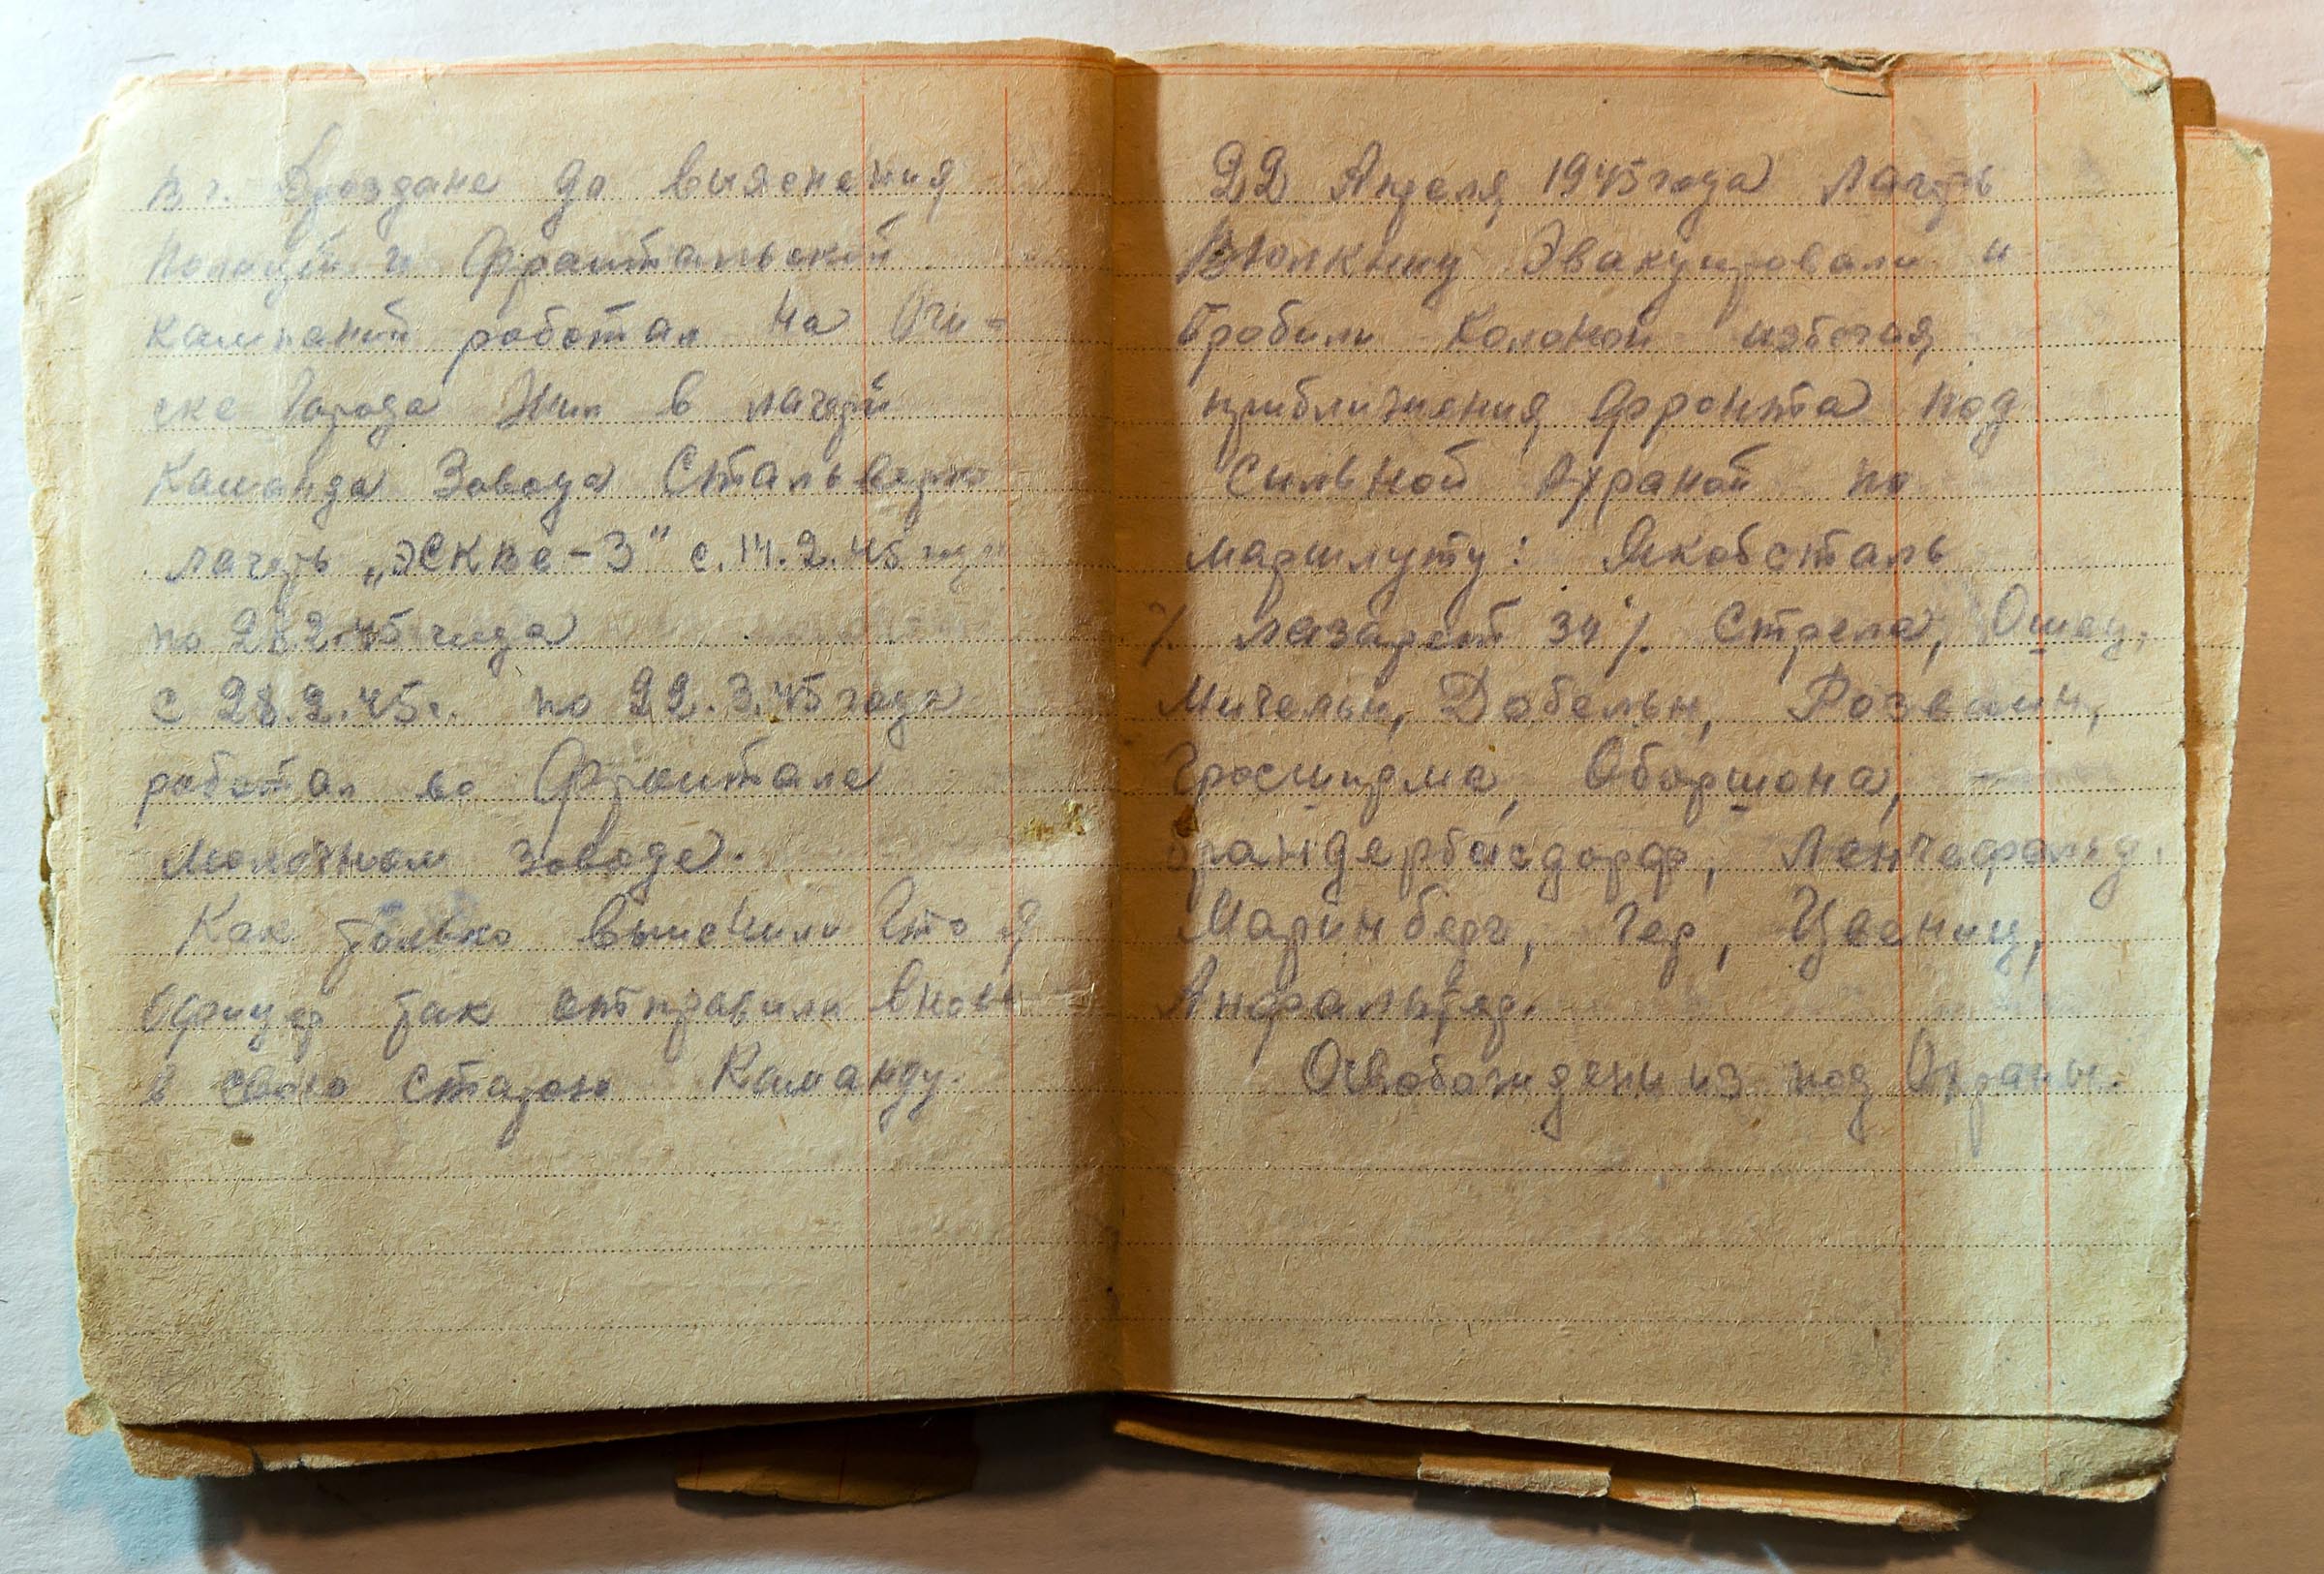 в г. Дроздане до выяснения
Полиций и Фрайтальский
кампаний работал на Очи-
ске Города Жил в лагере
Каманда Завода Стальверк
лагерь „ЭСКВЕ-3" с.14.2.45 года
по 28.2.45 года
с 28.2.45г. по 22.3.45 года
работал во Фрайтале
Молочном заводе.
Как только выяснили что я
Офицер так отправили вновь
в свою старою Каманду.
22 Апреля 1945 года Лагерь
Эвакуировали и
Колоной избегая
приближения Фронта под
Сильной Охраной по
маршруту: Якобсталь
/. лазарет 304 /. Стрела, Ошац,
Мигельн, Добельн, Розвайн,
Гросширма, Оборшона,
Брандербисдорф, Ленгефельд,
Маринберг, Гер, Цвениц,
Освобождены из под Охраны.